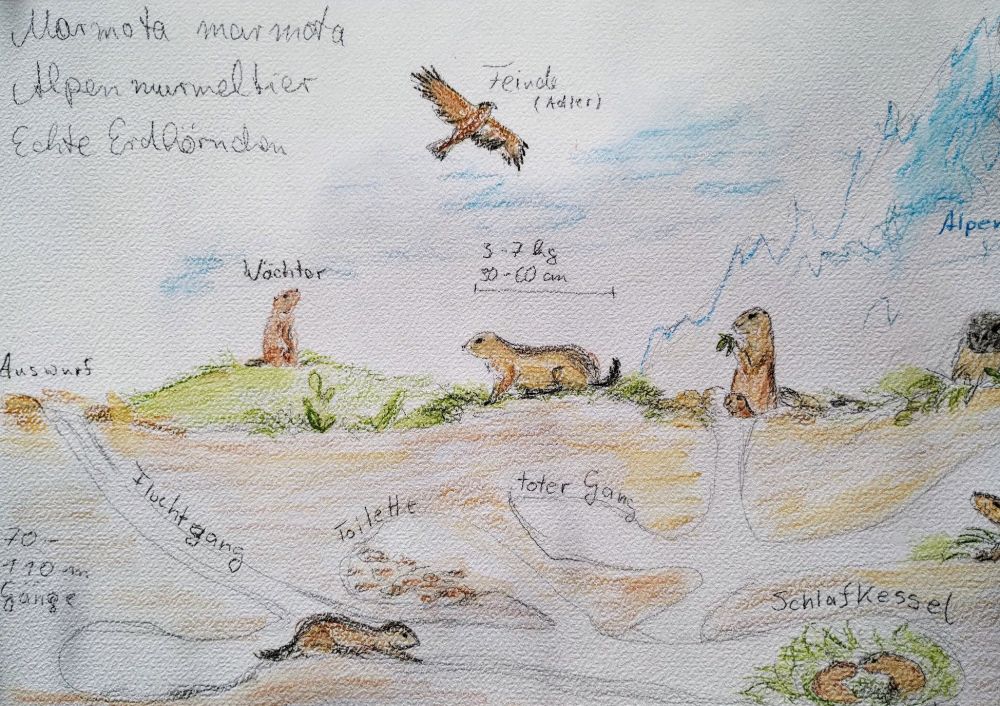 Marmota marmota
Alpenmurmeltier
Echte Erdhörnchen
Feinde
(Adler)
Alpen
3-7 kg
30-60 cm
Wächter
Auswurf
Fluchtgang
Toilette
toter Gang
70-
110 m
Gänge
Schlafkessel